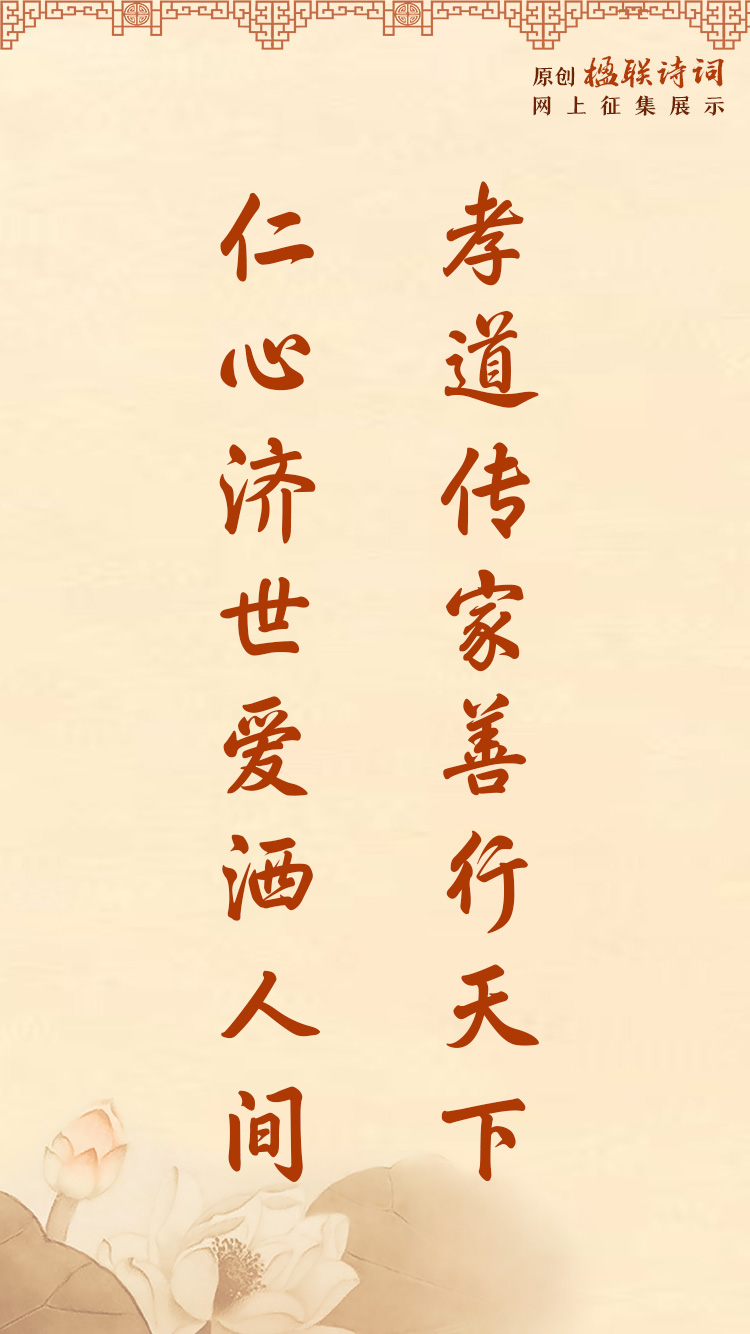 原创 楹联诗词
网上征集展示
孝道传家善行天下
仁心济世爱洒人间